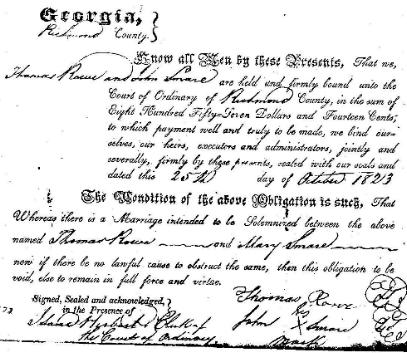 Georgia,
Richmond County.
Know all Men by these Presents, That we,
Thomas Rowe and John Smare are held and firmly bound unto the
Court of Ordinary of Richmond County, in the sum of
Eight Hundred Fifty-Seven Dollars and Fourteen Cents,
to which payment well and truly to be made, we bind our-
selves, our heirs, executors and administrators, jointly and
severally, firmly by these presents, sealed with our seals and
dated this 25th day of October 1823
The Condition of the above Obligation is such, That
Whereas there is a Marriage intended to be Solemnized between the above
named Thomas Rowe and Mary Smare
now if there be no lawful cause to obstruct the same, then this obligation to be
void, else to remain in full force and virtue.
Signed, Sealed and acknowledged,
in the Presence of
Thomas Rowe
his
John X Smare
mark
Clerk of
the Court of Ordinary